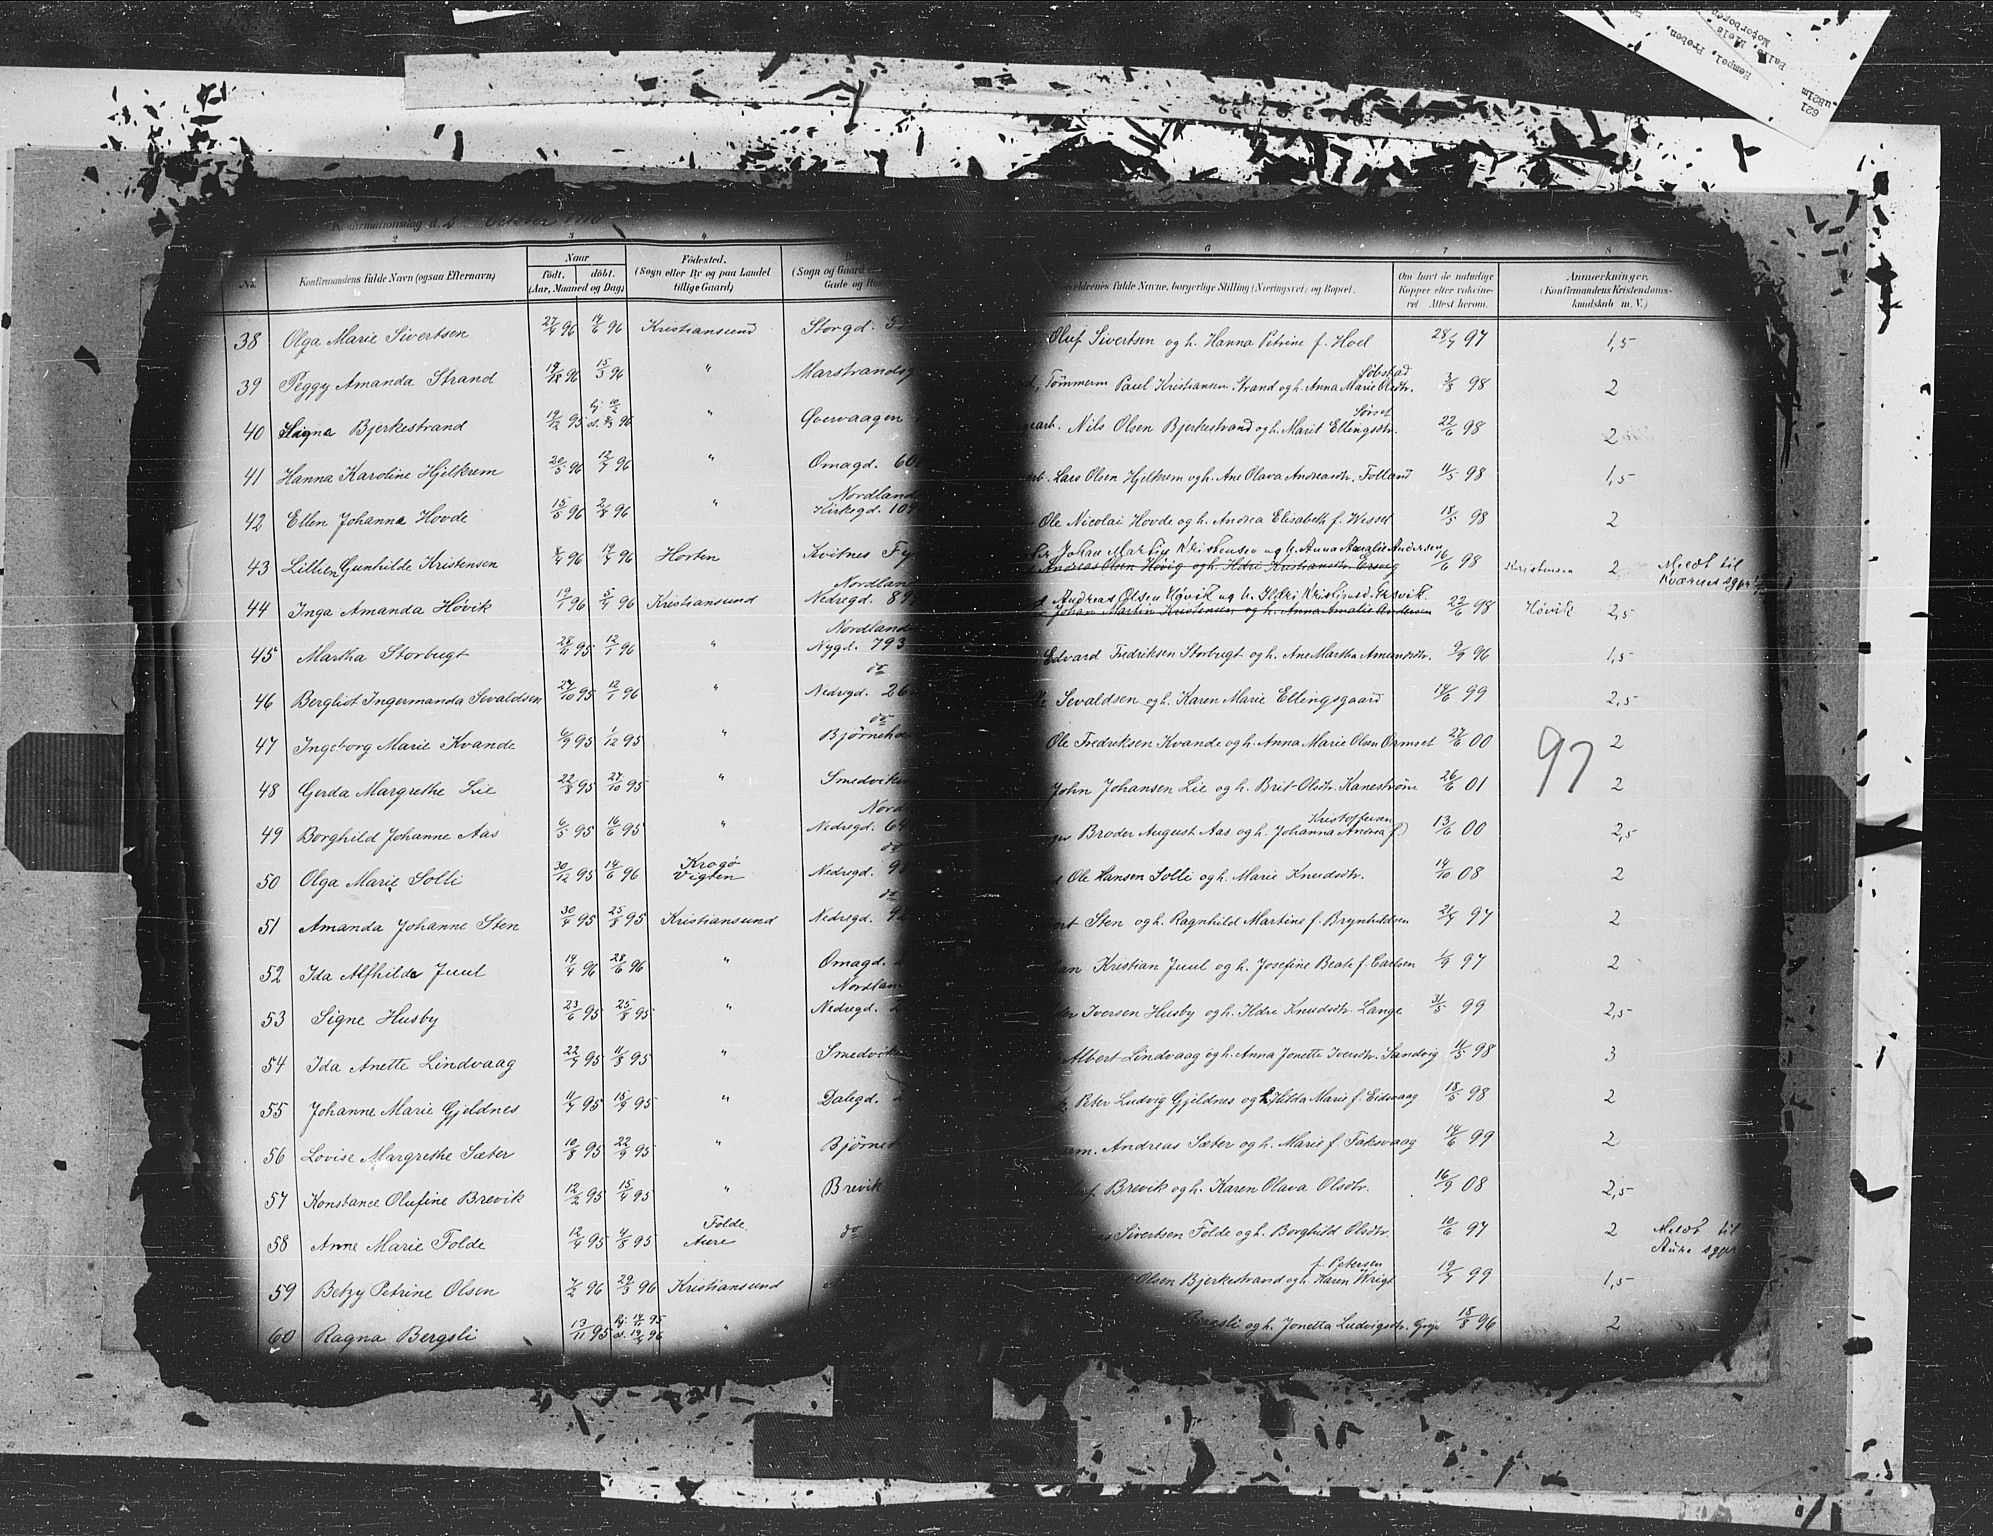 Konfirmationsdag d. 2 October 1910
2 3 4 6 7 8
No. Konfirmandens fulde Navn (ogsaa Efternavn) Naar født. døbt. (Aar, Maaned og Dag) Fødested. (Sogn eller By og paa Landet tillige Gaard) (Sogn og Gaard Gade og fulde Navne, borgerlige Stilling (Næringsvei) og Bopæl. Om havt de naturlige Kopper eller vaccineret Attest herom. Anmærkninger, (Konfirmandens Kristendomskundskab m. V.)
38 Olga Marie Sivertsen 27/4 96 14/6 96 Kristiansund Storgd. Oluf Sivertsen og h. Hanna Petrine f. Hoel 28/9 97 1,5
Søbstad
39 Peggy Amanda Strand 96 15/3 96 " Marstrandsg Tømmerm Paul Kristiansen Strand og h. Anna Marie Olsdtr. 3/8 98 2
Sørset
40 Signa Bjerkestrand 19/12 95 hj 10/2 st. 8/3 96 " Gvervaagen arb. Nils Olsen Bjerkestrand og h. Marit Ellingsdtr. 22/6 98 2
41 Hanna Karoline Hjelkrem 20/5 96 12/7 96 " Omagd. 601 arb. Lars Olsen Hjelkrem og h. Ane Olava Andreasdtr. Folland 11/5 98 1,5
Nordland
42 Ellen Johanna Hovde 15/5 96 2/8 96 " Kirkegd. 109 Ole Nicolai Hovde og h. Andrea Elisabeth f. Wessel 18/5 98 2
Johan Martin Kristensen og h. Anna Amalie Andersen
43 Lillien Gunhilde Kristensen 8/4 96 19/4 96 Horten Kvitnes Fy Andreas Olsen Høvig og h. Ildri Kristiansdtr. Ersvig 16/6 98 Kristensen 2 Meldt til
Kværnes sgpr
Nordland
Andreas Olsen Høvik og h. Ildri Kristiansd. Ersvik
44 Inga Amanda Høvik 19/1 96 5/4 96 Kristiansund Nedregd. 89 Johan Martin Kristensen og h. Anna Amalie Andersen 22/6 98 Høvik 2,5
Nordland
45 Martha Storbugt 28/11 95 12/1 96 " Nygd. 793 Edvard Fredriksen Storbugt og h. Ane Martha Amundsdtr. 9/9 96 1,5
do
46 Bergliot Ingermanda Sevaldsen 27/10 95 12/1 96 " Nedregd. 26 Sevaldsen og h. Karen Marie Ellingsgaard 14/6 99 2,5
do
47 Ingeborg Marie Kvande 6/9 95 1/12 95 " Bjørneha Ole Fredriksen Kvande og h. Anna Marie Olsen Ormset 27/6 00 97 2
48 Gerda Margrethe Lie 22/8 95 27/10 95 " Smedviken John Johansen Lie og h. Brit Olsdtr. Kanestrøm 26/6 01 2
Nordl
Kristoffersen
49 Borghild Johanne Aas 6/5 95 16/6 95 " Nedregd. 64 Broder August Aas og h. Johanna Andrea f. 13/6 00 2,5
do
Krogø
50 Olga Marie Solli 30/12 95 14/6 96 Vigten Nedregd. 95 Ole Hansen Solli og h. Marie Knudsdtr. 14/10 08 2
do
51 Amanda Johanne Sten 30/4 95 25/8 95 Kristiansund Nedregd. 92 Sten og h. Ragnhild Martine f. Brynhildsen 21/9 97 2
52 Ida Alfhilde Juul 14/4 96 28/6 96 " Omagd. Kristian Juul og h. Josefine Beate f. Carlsen 1/9 97 2
Nordlan
53 Signe Husby 23/6 95 25/8 95 " Nedregd. Iversen Husby og h. Ildri Knudsdtr. Lange 31/5 99 2,5
54 Ida Anette Lindvaag 22/4 95 11/8 95 " Smedvik Albert Lindvaag og h. Anna Jonette Iversdtr. Sandvig 11/5 98 3
55 Johanne Marie Gjeldnes 11/7 95 15/9 95 " Dalegd. Peter Ludvig Gjeldnes og h. Hilda Marie f. Eidsvaag 18/5 98 2
56 Lovise Margrethe Sæter 10/8 95 22/9 95 " Bjørneh Andreas Sæter og h. Marie f. Faksvaag 14/6 99 2
57 Konstance Olufine Brevik 12/2 95 15/4 95 " Brevik Brevik og h. Karen Olava Olsdtr. 16/9 08 2,5
Folde
58 Anne Marie Folde 12/4 95 4/8 95 Aure do Sivertsen Folde og h. Borghild Olsdtr. 10/6 97 2 Meldt til
Aure sgpr
f. Petersen
59 Betzy Petrine Olsen 7/2 96 29/3 96 Kristiansund Olsen Bjerkestrand og h. Karen Wrigt 19/7 99 1,5
60 Ragna Bergsli 13/11 95 hj. 14/11 95 st. 19/4 96 " Bergsli og h. Jonetta Ludvigsdtr. 18/8 96 2
Hempel, Preben.
Palle Niels
Motorbogen
621